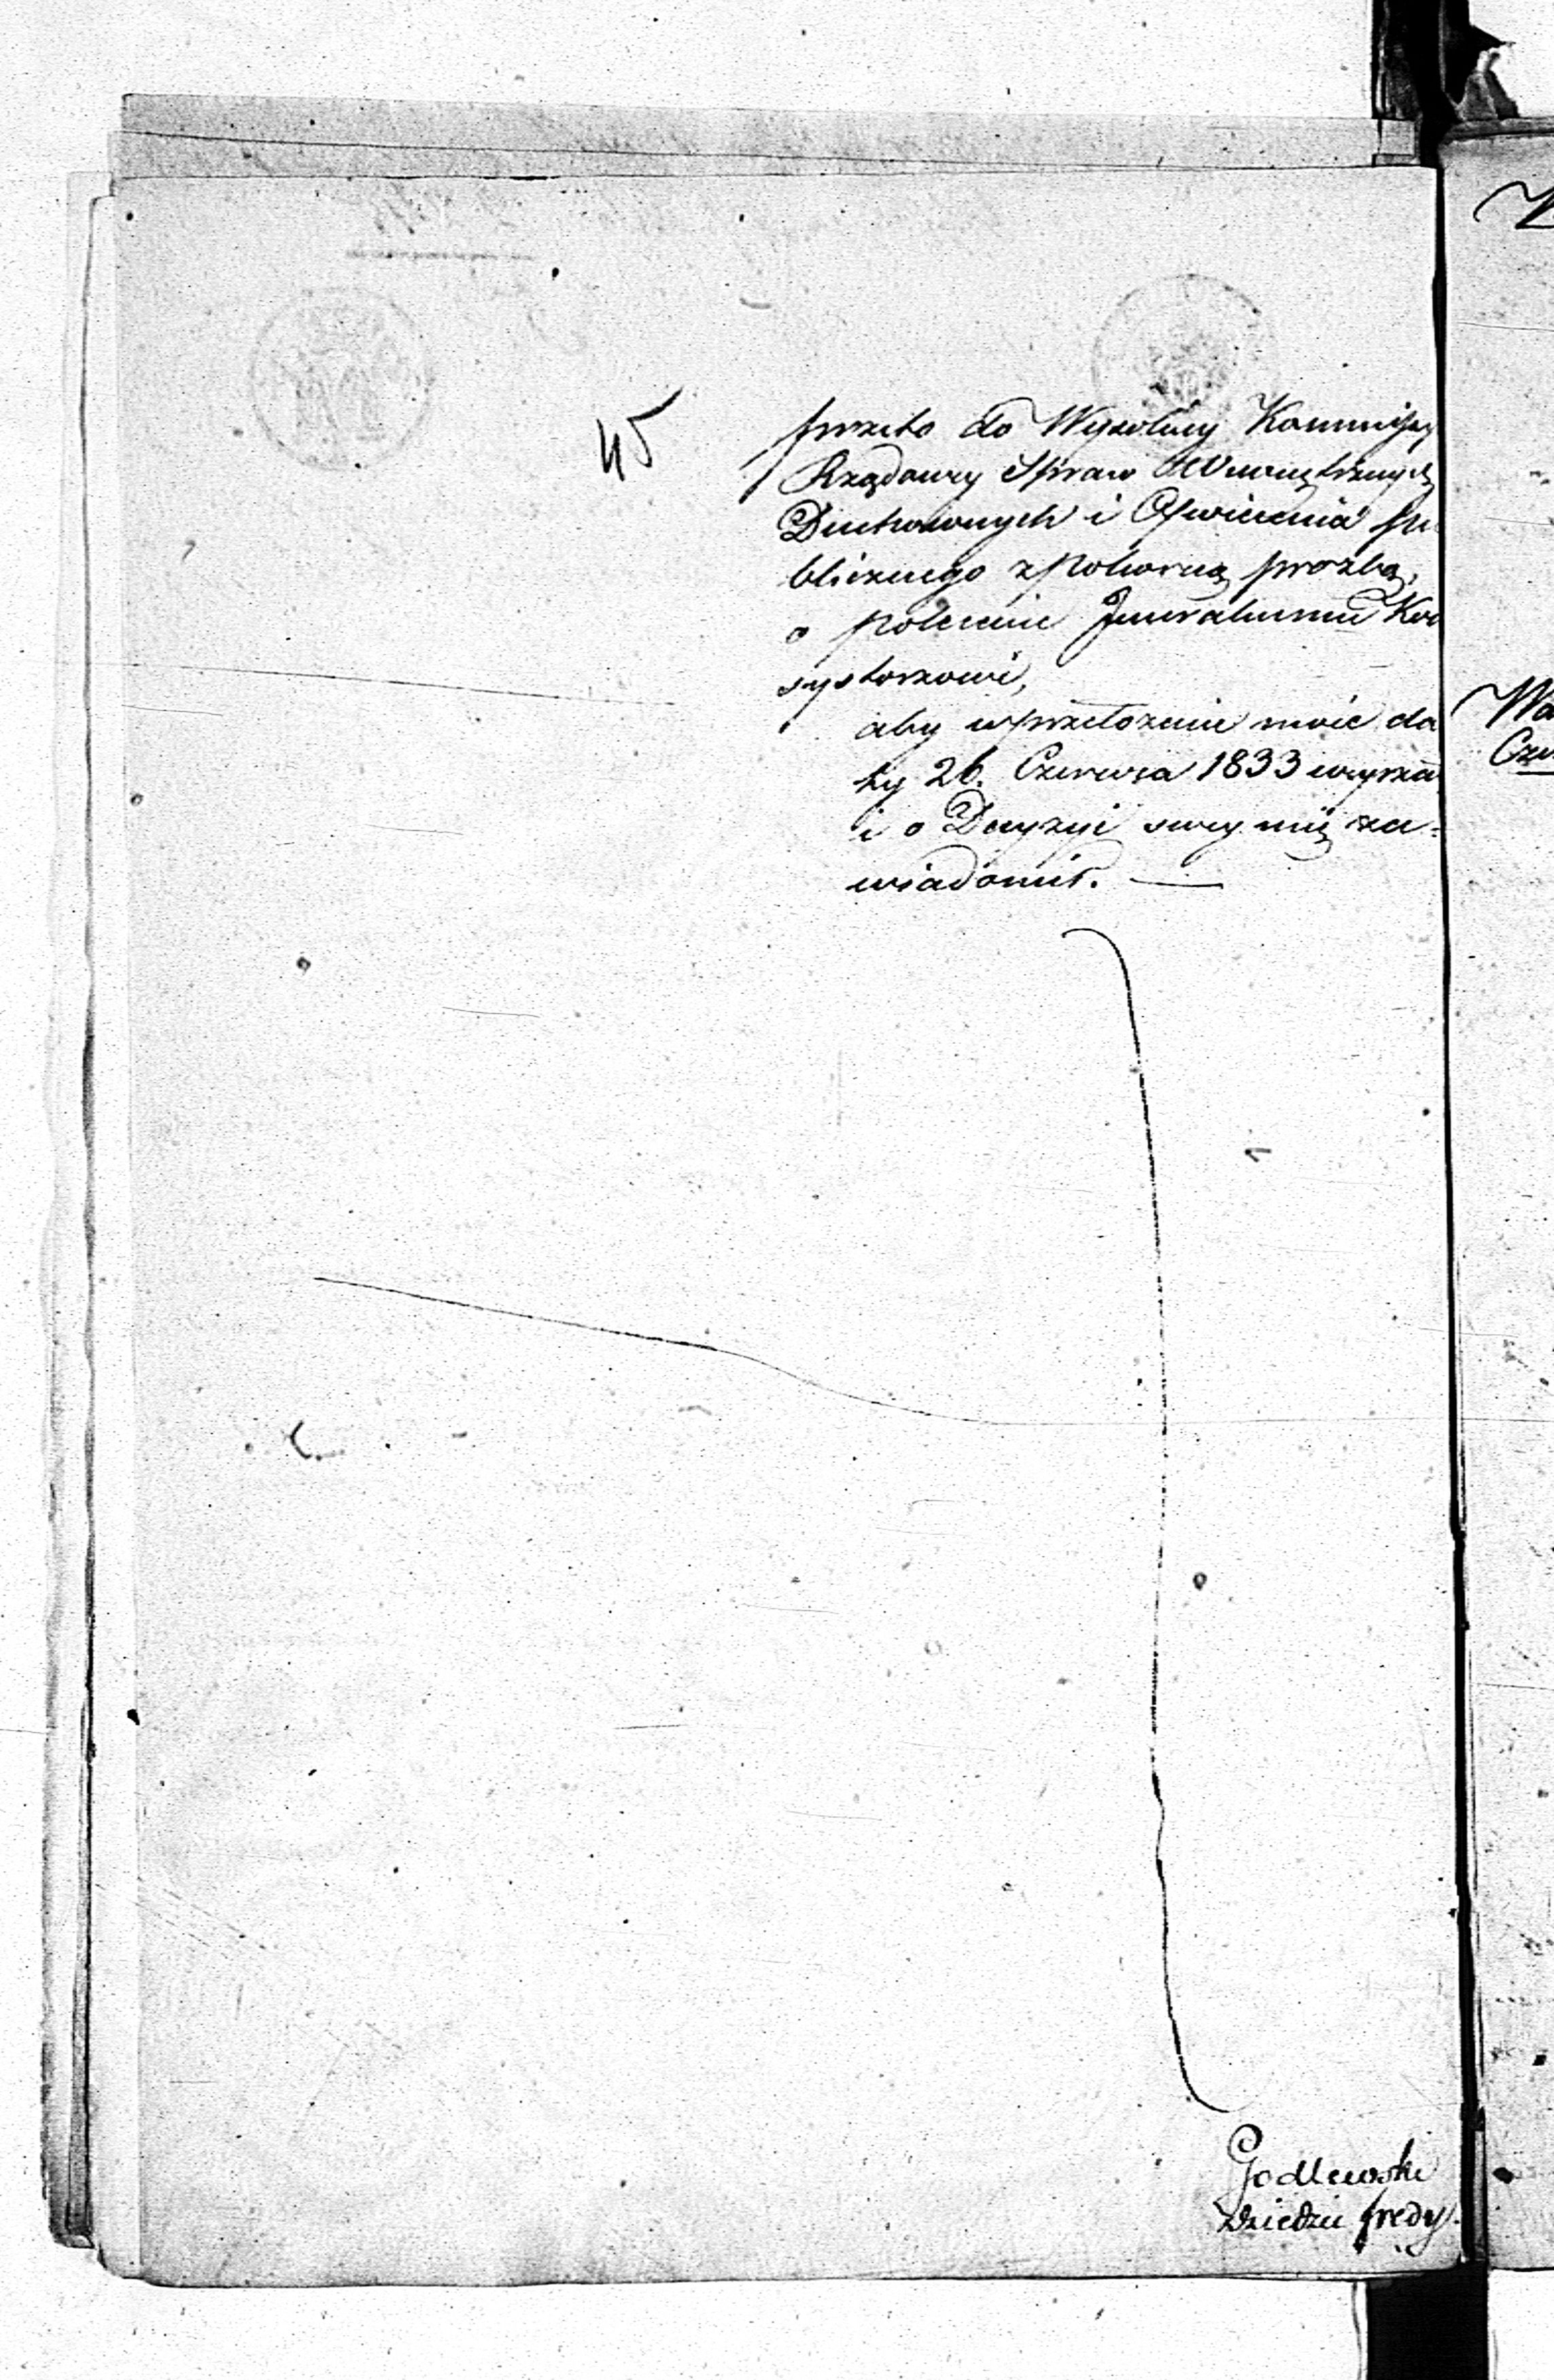 45
przeto do Wysokiey Kommissyi
Rządowey Spraw Wewnętrznych
Duchownych i Oświecenia Pu
blicznego z pokorną prozbą,
o polecenie Jeneralnemu Kon
systorzowi,
aby w przełożenie moie da
ty 26. Czerwca 1833 weyrzał
i o Decyzyi swey mię za=
wiadomił. —
Godlewski
Dziedzic Fredy.
Wa
Cze